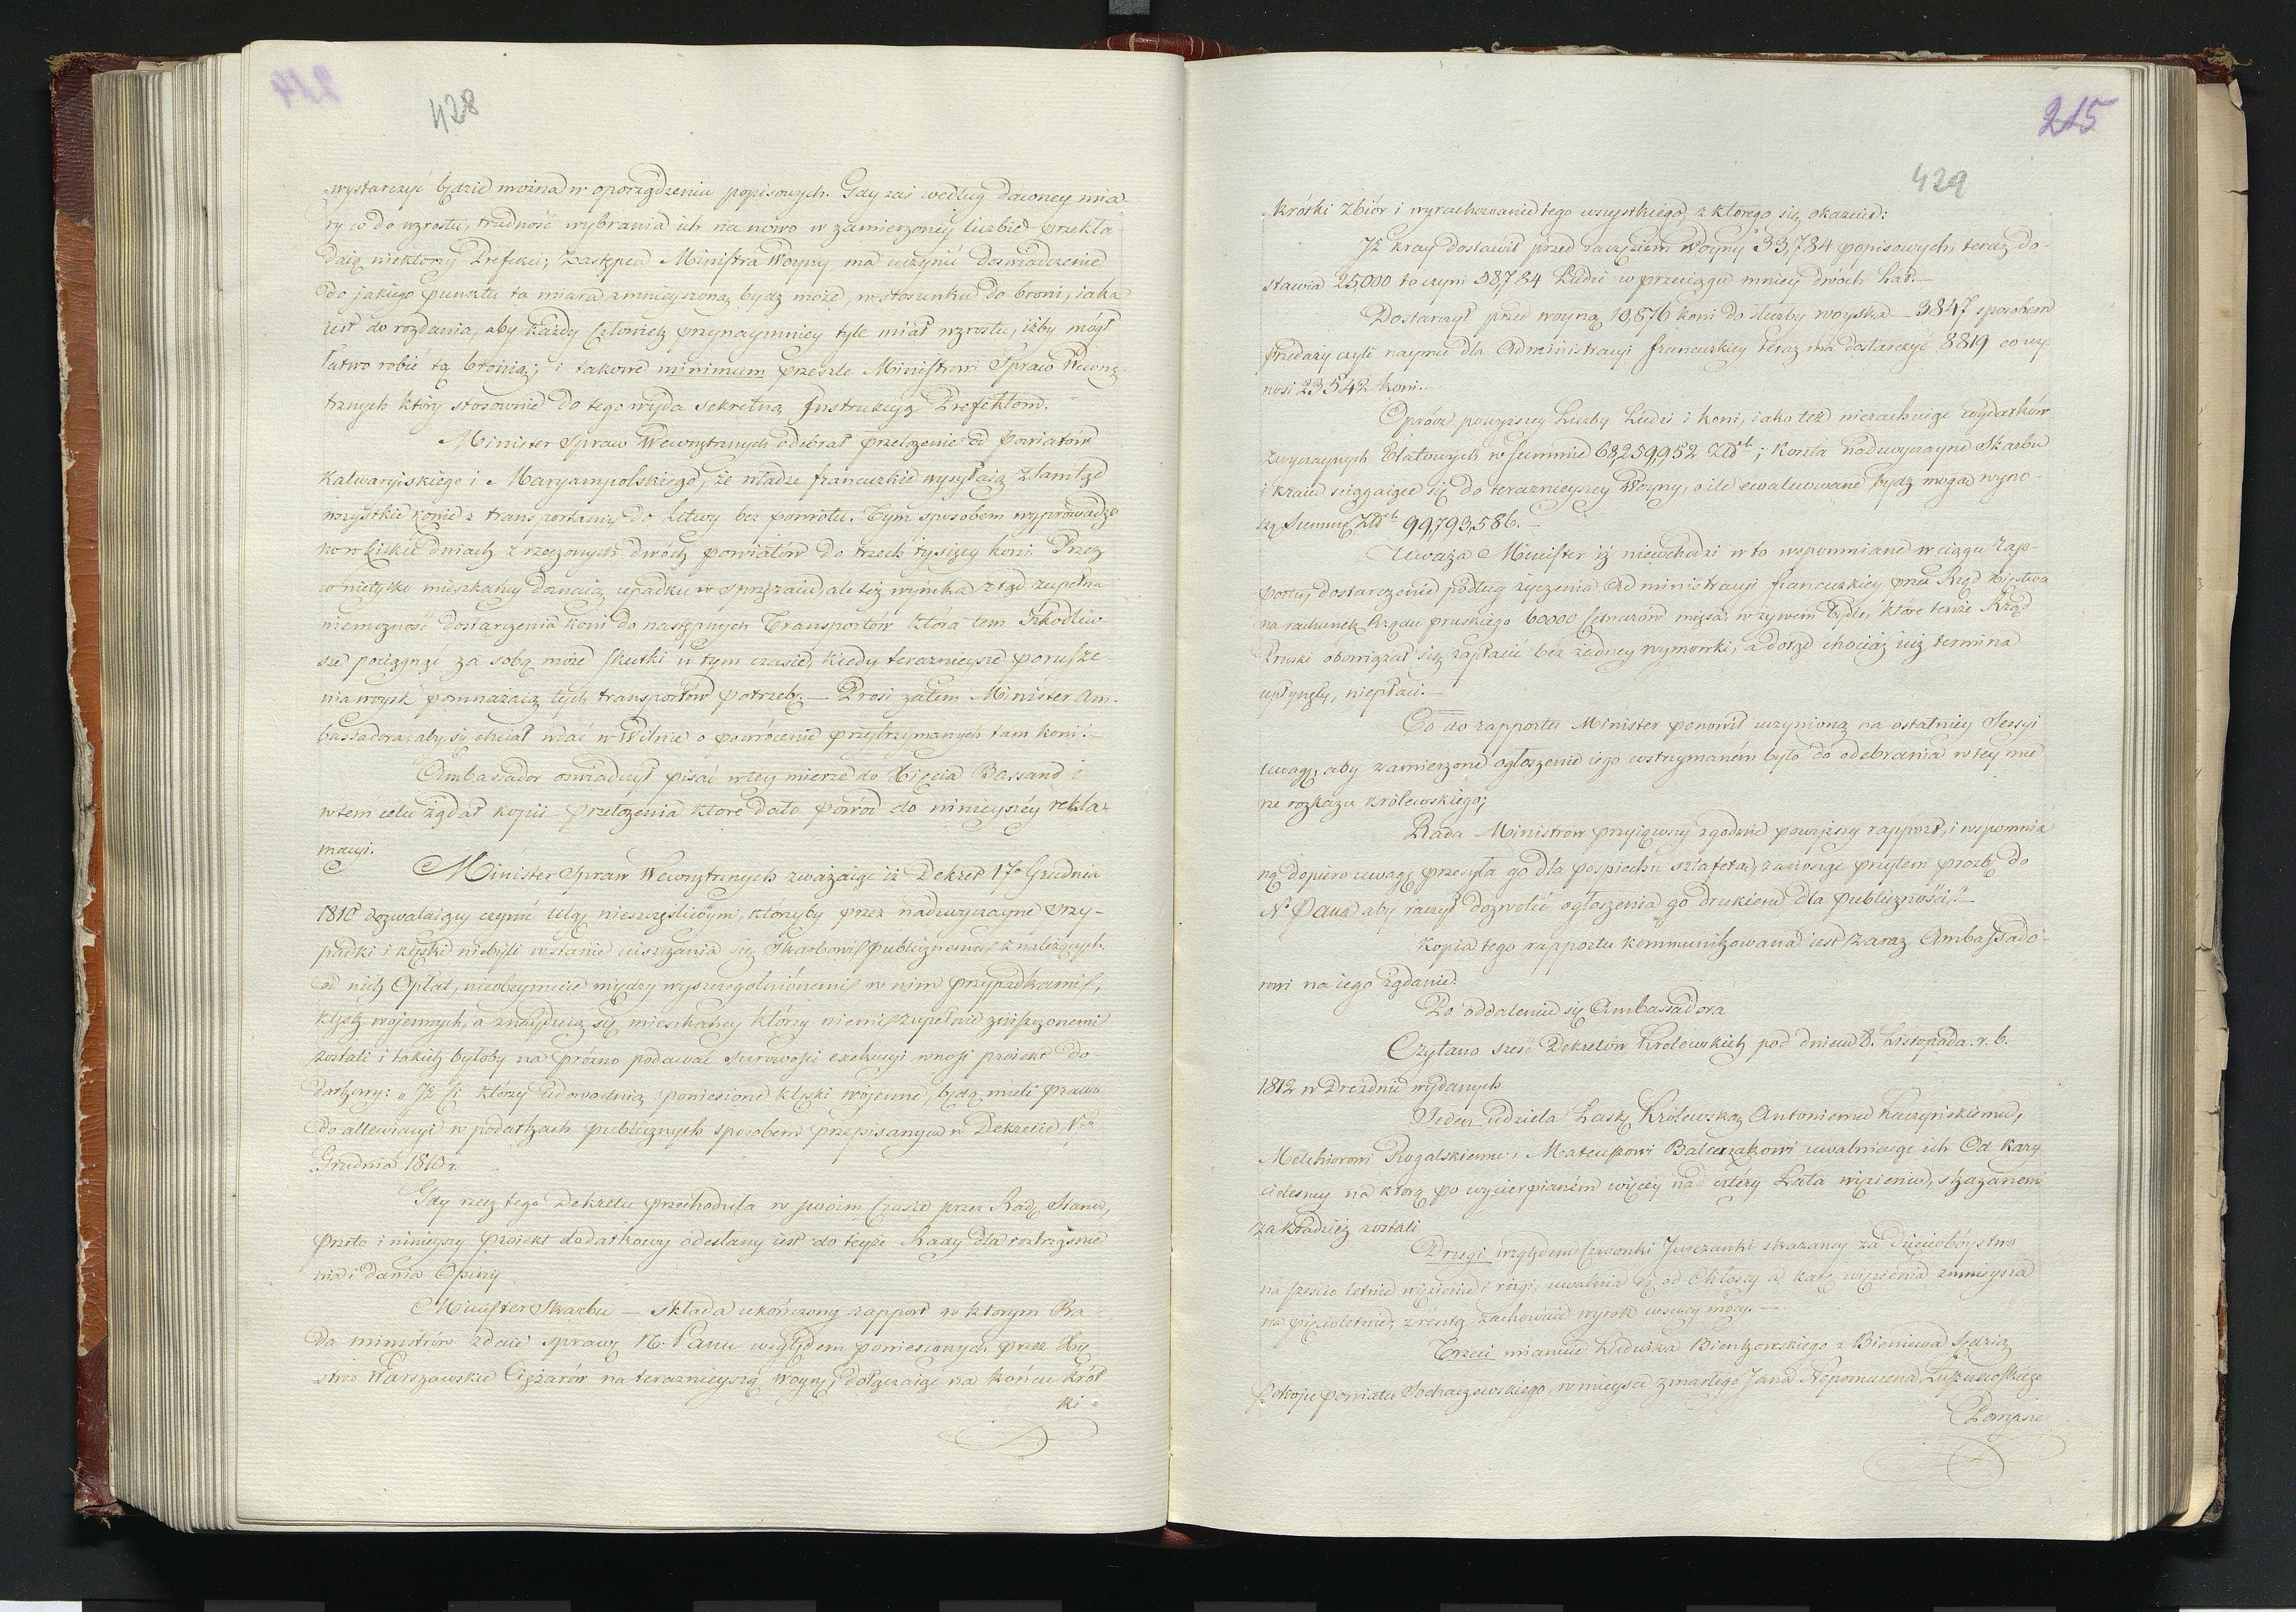 428
wystarczyć będzie można w oporządzeniu popisowych. Gdy zaś według dawney mia-
ry co do wzrostu, trudność wybrania ich na nowo w zamierzoney liczbie przekła-
daią niektórzy Prefekci; Zastępca Ministra Woyny ma uczynić doświadczenie
do jakiego punktu ta miara zmnieyszoną bydź może, w stosunku do broni, iaka
iest do rozdania, aby każdy Człowiek przynaymniey tyle miał wzrostu, iżby mógł
łatwo robić tą bronią; i takowe minimum prześle Ministrowi Spraw Wewnę-
trznych który stosownie do tego wyda sekretną Instrukcyą Prefektom.
Minister Spraw Wewnętrznych odebrał przełożenie od Powiatów
Kalwaryiskiego i Maryampolskiego, że władze francuzkie wysyłaią ztamtąd
wszystkie konie z transportami do Litwy bez powrotu. Tym sposobem wyprowadzo-
no w kilku dniach z rzeczonych dwóch powiatów do trzech tysięcy koni. Przez
co nietylko mieszkańcy doznaią upadku w sprzężaiu, ale też wynika ztąd zupełna
niemożność dostarczenia koni do następnych Transportów która tem szkodliw-
sze pociągnąć za sobą może skutki w tym czasie, kiedy teraznieysze porusze-
nia woysk pomnażaią tych transportów potrzebę. — Prosi zatem Minister Am-
bassadora, aby się chciał wdać w Wilnie o powrócenie przytrzymanych tam koni. —
Ambassador oświadczył pisać w tey mierze do Xięcia Bassano i
w tem celu żądał kopii przełożenia które dało powód do ninieyszéy rekla-
macyi.
Minister Spraw Wewnętrznych zważaiąc iż Dekret 17º Grudnia
1810 dozwalaiący czynić ulgę nieszczęśliwym, którzyby przez nadzwyczayne przy-
padki i klęski niebyli w stanie uiszczania się Skarbowi publicznemu z należących
od nich Opłat, nieobeymuie między wyszczególnionemi w nim przypadkami,
klęsk wojennych, a znayduią się mieszkańcy którzy niemi zupełnie zniszczonemi
zostali i takich byłoby na próżno podawać surowości exekucyi wnosi proiekt do-
datkowy: „Iż Ci którzy udowodnią poniesione klęski wojenne, będą mieli prawo
do allewiacyi w podatkach publicznych sposobem przepisanym w Dekrecie 17º
Grudnia 1810 r.
Gdy rzecz tego Dekretu przechodziła w swoim Czasie przez Radę Stanu,
przeto i ninieyszy proiekt dodatkowy odesłany iest do teyże Rady dla roztrząśnie-
nia i dania Opinii
Minister Skarbu — składa ukończony rapport w którym Ra-
da ministrów zdaie sprawę N. Panu względem poniesionych przez Xię-
stwo Warszawskie Ciężarów na teraznieyszą woynę, dołączaiąc na końcu krót
ki
215
429
krótki Zbiór i wyrachowanie tego wszystkiego, z którego się okazuie:
Iż kray dostawił przed zaczęciem Woyny 33,784 popisowych, teraz do-
stawia 25,000 to czyni 58,784 Ludzi w przeciągu mniey dwóch Lat. —
Dostarczył przed woyną 10,876 koni do służby woyska — 3847 sposobem
przedaży czyli naymu dla Administracyi francuzkiey teraz ma dostarczyć 8819 co wy-
nosi 23542 koni. —
Oprócz powyższey Liczby Ludzi i koni, iako też niezachuiąc wydatków
zwyczaynych Etatowych w Summie 68,259,952 Złotch; koszta nadzwyczayne Skarbu
i kraiu ściągaiące się do teraznieyszey Woyny, o ile ewaluowane bydz mogą wyno-
szą Summę Złotch 99,793,586. —
Uważa Minister iż niewchodzi w to wspomniane w ciągu Rap-
portu, dostarczenie podług życzenia Administracyi francuzkiey przez Rząd Xięstwa
na rachunek Rządu pruskiego 60000 Cetnarów mięsa w żywem Bydle, które tenże Rząd
Pruski obowiązał się zapłacić bez żadney wymowki, a dotąd chociaż iuż termina
upłynęły, niepłaci. —
Co do rapportu Minister ponowił uczynioną na ostatniey Sessyi
uwagę, aby zamierzone ogłoszenie iego wstrzymaném było do odebrania w tey mie-
rze rozkazu królewskiego;
Rada Ministrów przyiąwszy zgodnie powyższy rapport, i wspomnia-
ną dopiero uwagę przesyła go dla pospiechu sztafetą, zanosząc przytem prozbę do
Nº Pana aby raczył dozwolić ogłoszenia go drukiem dla publiczności. —
Kopia tego rapportu kommunikowana iest zaraz Ambassado-
rowi na iego żądanie.
Po oddaleniu się Ambassadora
Czytano sześć Dekretów Królewskich pod dniem 8. Listopada. r. b.
1812 w Dreźdnie wydanych
Jeden udziela Łaskę Królewską Antoniemu Kuczyńskiemu,
Melchiorowi Rogalskiemu i Mateuszowi Balcerzakowi uwalniaiąc ich Od kary
cielesney na którą po wycierpianém więcey nad cztéry Lata więzieniu, skazanemi
za kradzież zostali
Drugi względem Czwonki Juszczanki skazaney za Dzieciobóystwo
na sześcio letnie więzienie i rózgi, uwalnia ią od Chłosty a karę więzienia zmnieysza
na pięcioletnie; zresztą zachowuie wyrok w swey mocy. —
Trzeci mianuie Ludwika Bieńkowskiego z Bieniewa Sędzią
Pokoju powiatu Sochaczewskiego, w mieysce zmarłego Jana Nepomucena Łuszczewskiego
Powyższe